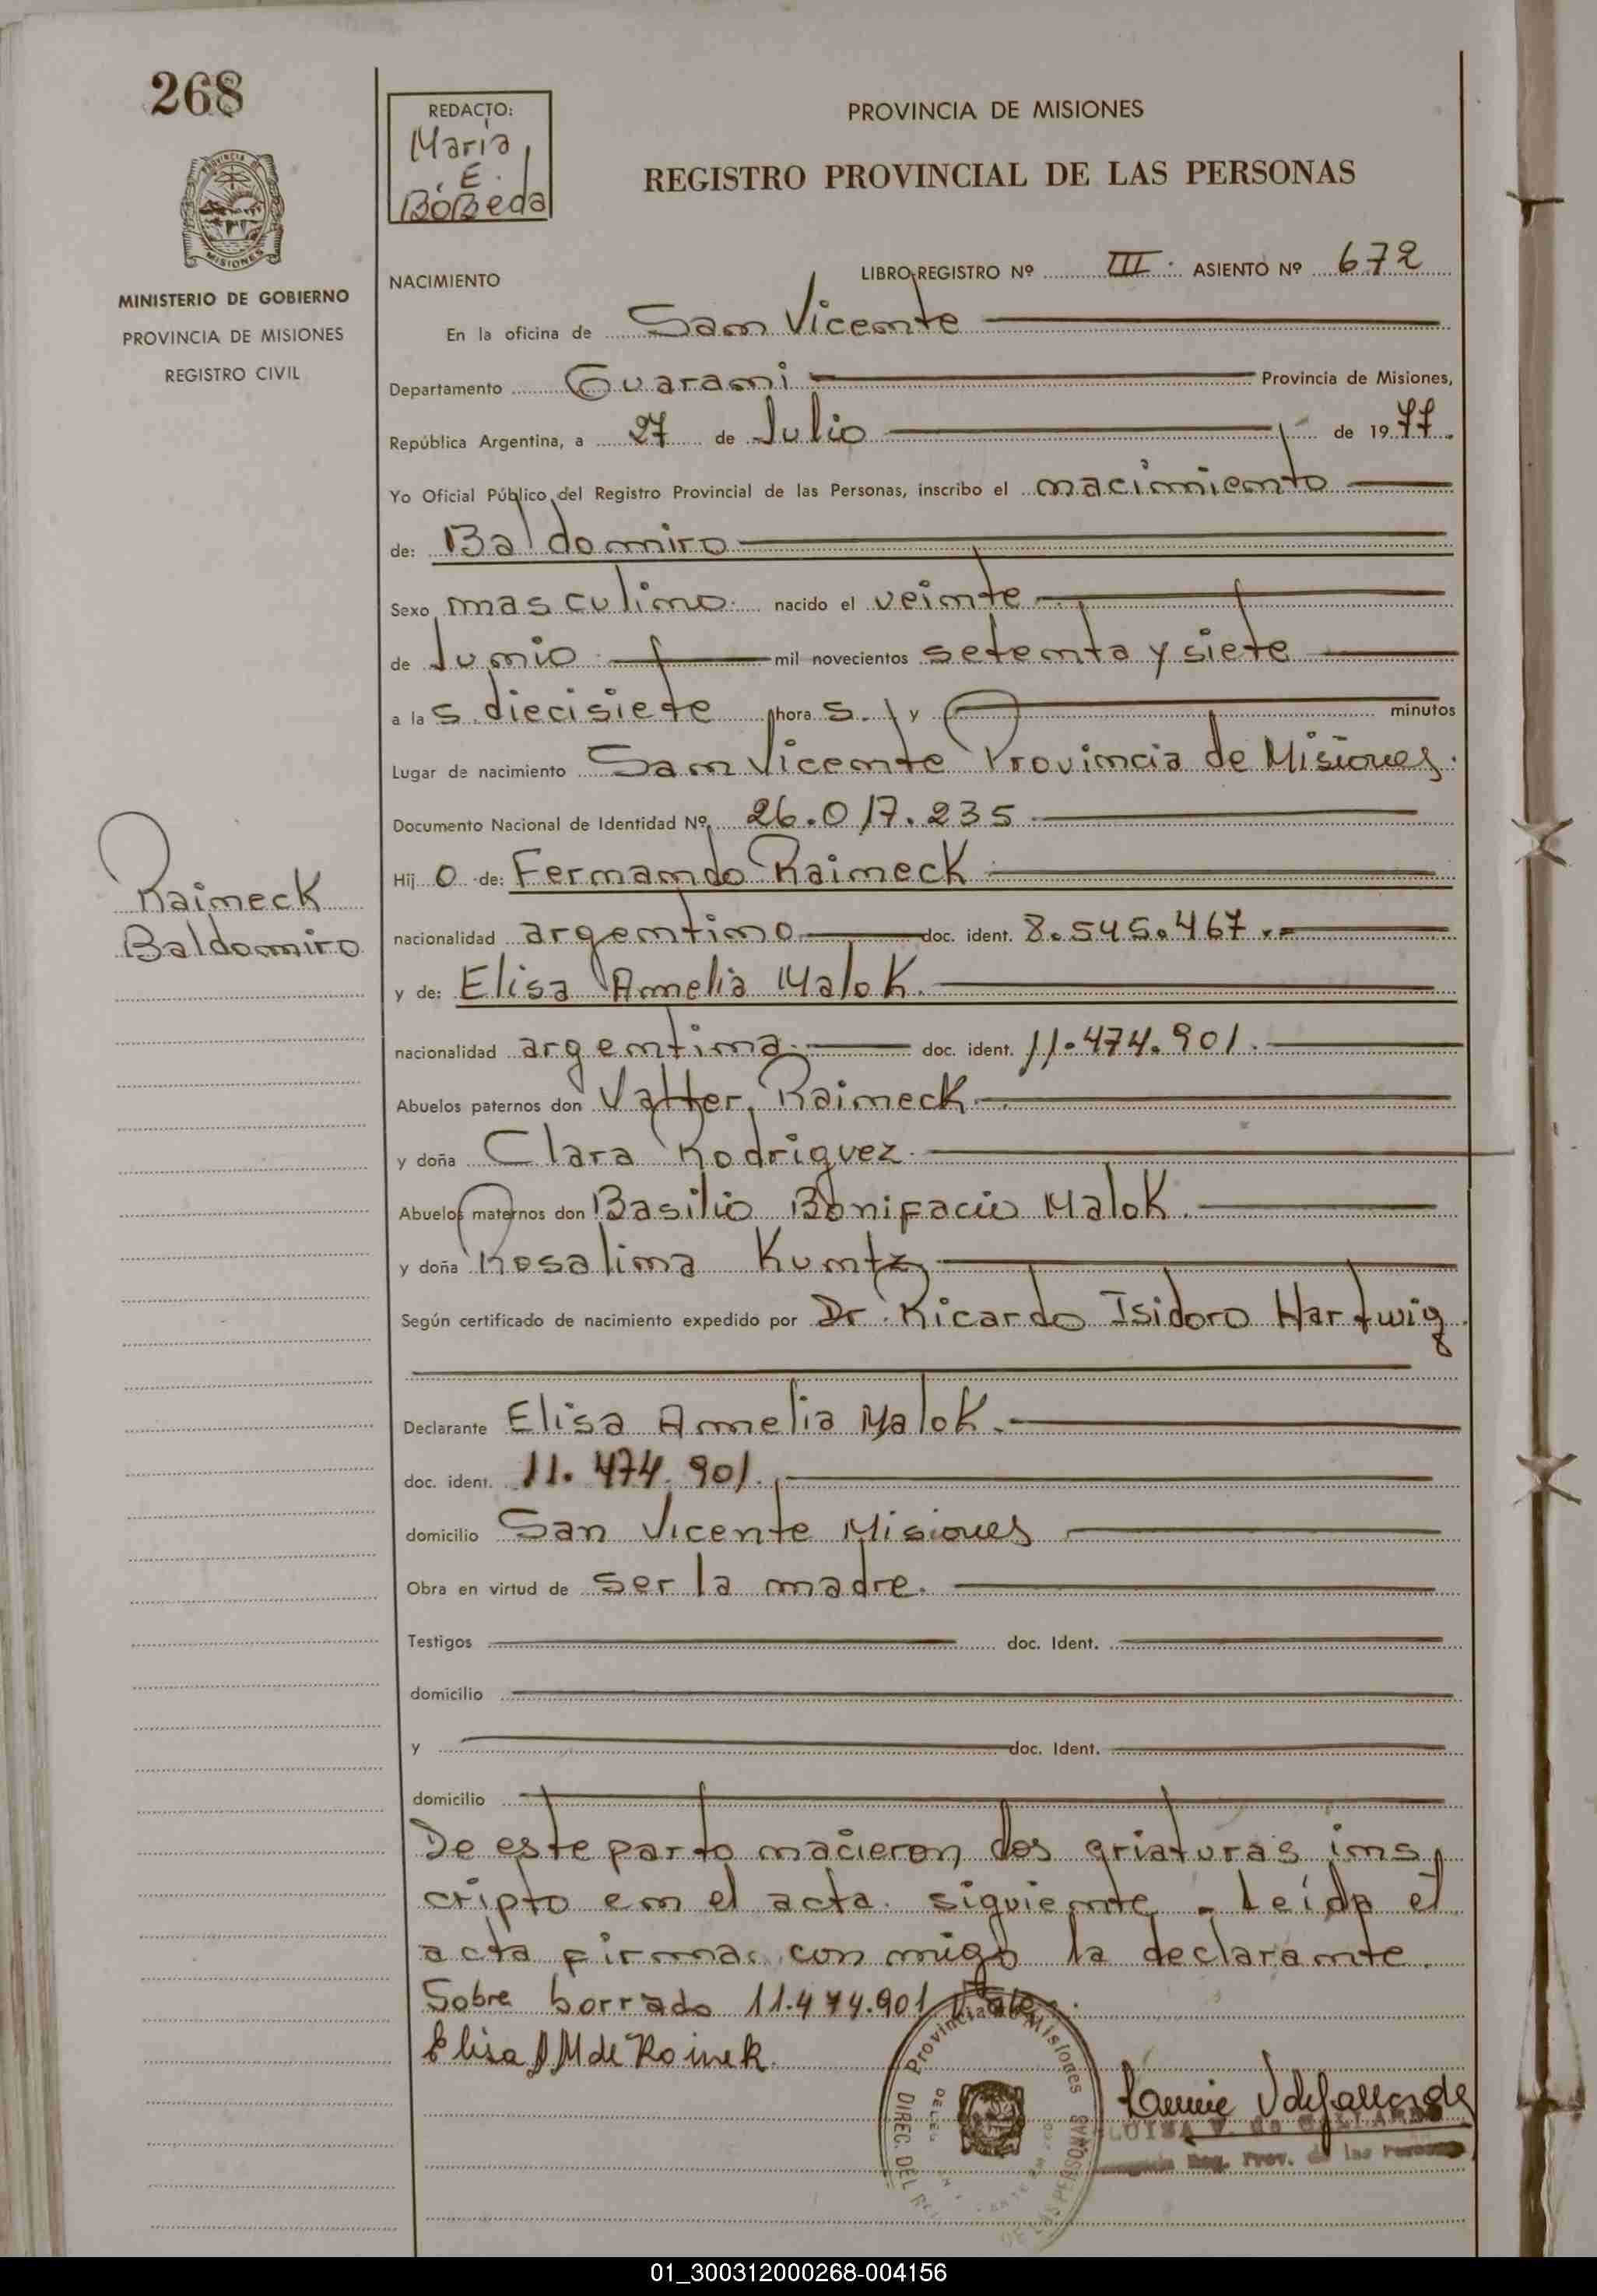 268
REDACTO:
María
E.
BóBeda
PROVINCIA DE MISIONES
REGISTRO PROVINCIAL DE LAS PERSONAS
PROVINCIA DE
MISIONES
MINISTERIO DE GOBIERNO
PROVINCIA DE MISIONES
REGISTRO CIVIL
NACIMIENTO
LIBRO-REGISTRO Nº III. ASIENTO Nº 672
En la oficina de San Vicente
Departamento Guarani Provincia de Misiones,
República Argentina, a 27 de Julio de 1977.
Yo Oficial Público del Registro Provincial de las Personas, inscribo el nacimiento
de: Baldomiro
Sexo masculino. nacido el veinte
de Junio mil novecientos setenta y siete
a las diecisiete horas. y minutos
Lugar de nacimiento San Vicente Provincia de Misiones.
Documento Nacional de Identidad Nº 26.017.235
Hijo de: Fernando Raineck
Raineck
Baldomiro
nacionalidad argentino doc. ident. 8.545.467.
y de: Elisa Amelia Malok.
nacionalidad argentina. doc. ident. 11.474.901.
Abuelos paternos don Valter Raineck
y doña Clara Rodriguez.
Abuelos maternos don Basilio Bonifacio Malok.
y doña Rosalina Kuntz
Según certificado de nacimiento expedido por Dr. Ricardo Isidoro Hartwig.
Declarante Elisa Amelia Malok.
doc. ident. 11.474.901.
domicilio San Vicente Misiones
Obra en virtud de ser la madre.
Testigos doc. Ident.
domicilio
y doc. Ident.
domicilio
De este parto nacieron dos criaturas ins
cripto en el acta siguiente. Leída el
acta firma con migo la declarante.
Sobre borrado 11.474.901 Vale.
Elisa A M de Roinek.
Provincia de Misiones
DIREC. DEL REG. DE LAS PERSONAS
LUISA V. de GALLARDO
Reg. Prov. de las Personas
01_300312000268-004156